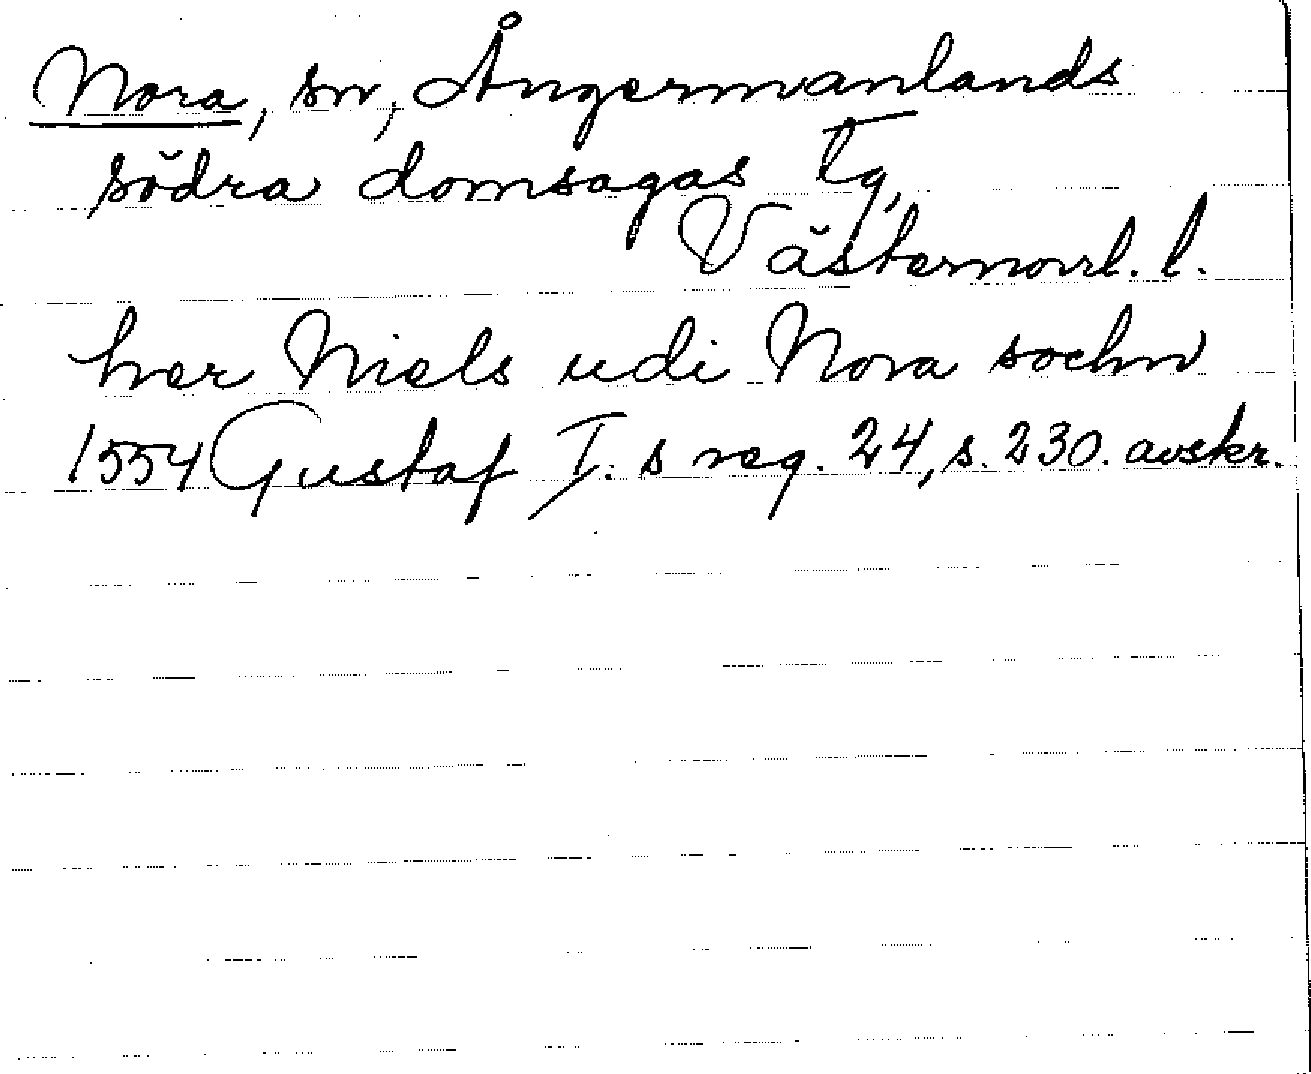 Nora, sn, Ångermanlands
södra domsagas tg,
Västernorrl. l.
her Niels udi Nora sochn
1554 Gustaf I:s reg. 24, s. 230. avskr.